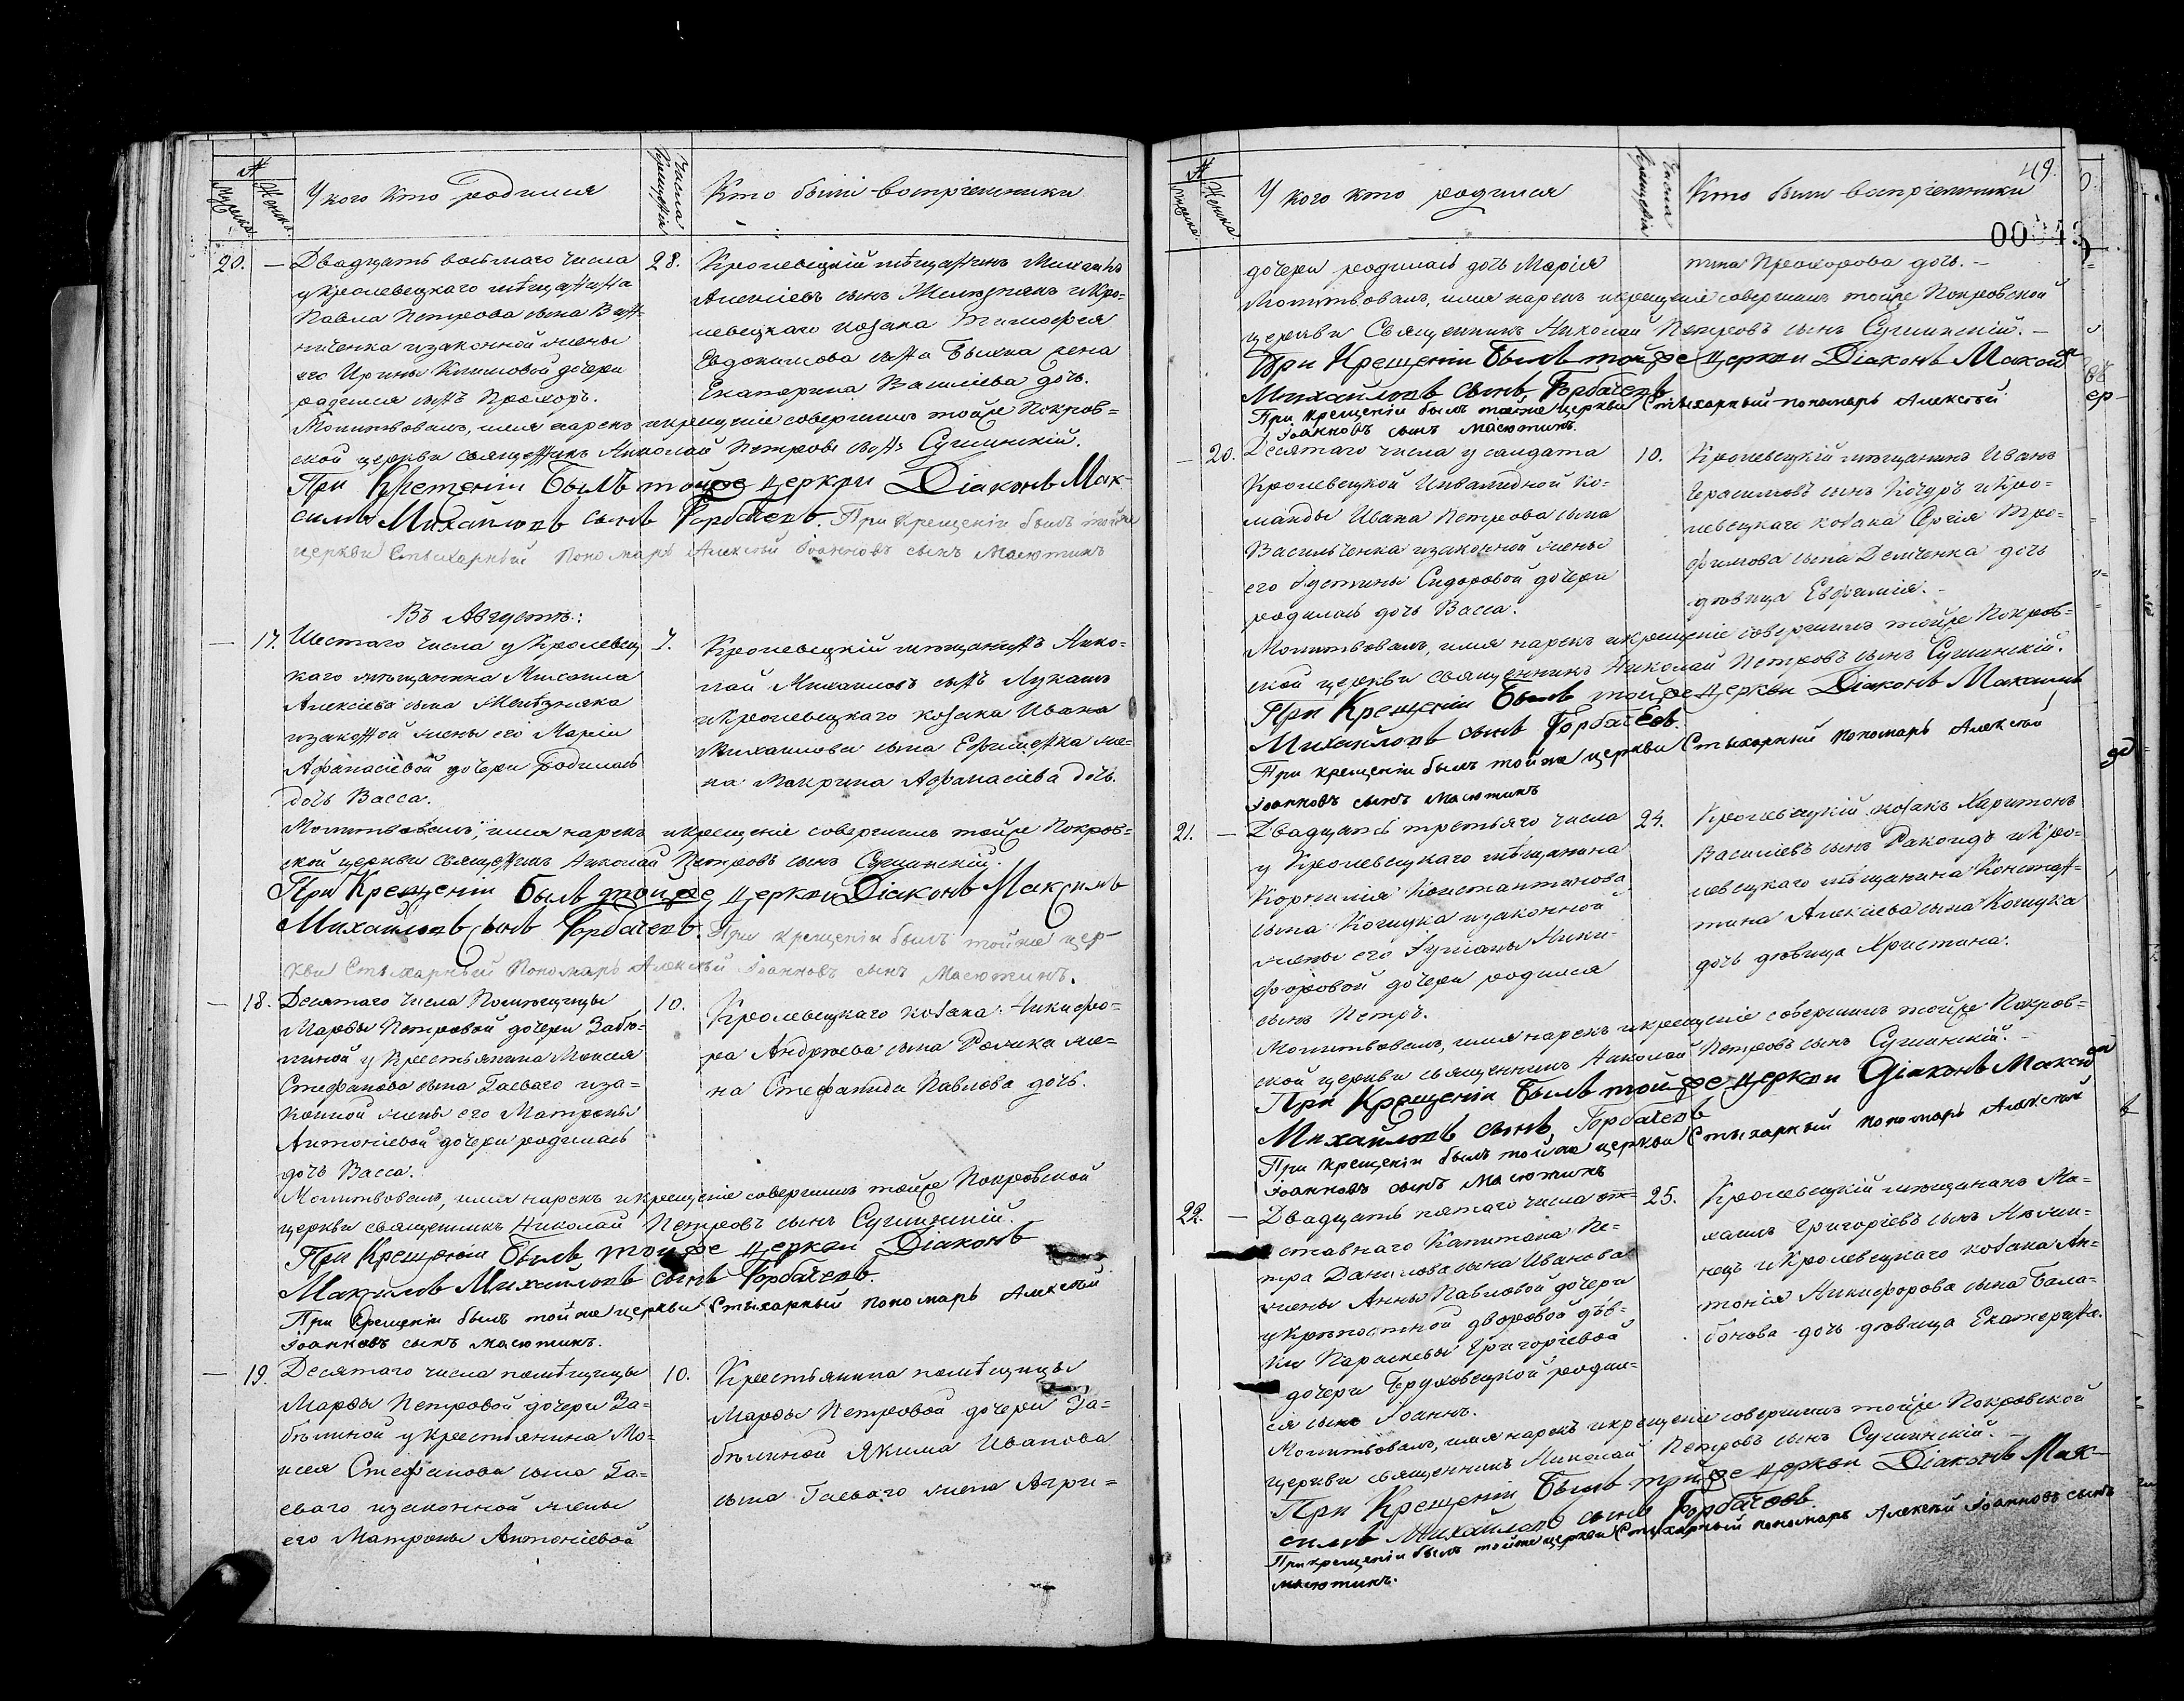 №
Мужеска
Женска
У кого кто родился
Числа Крещенія
Кто были воспріемники
20. — Двадцать восьмаго числа
у Кролевецкаго мѣщанина
Павла Петрова сына
ниченка и законной жены
его Ирины Климовой дочери
родился сынъ Прохоръ.
28. Кролевецкій мѣщанинъ Михаилъ
Алексіевъ сынъ и Кро-
левецкаго козака Тимофея
Евдокимова сына жена
Екатерина Василіева дочь.
Молитвовалъ, имя нарекъ и крещеніе совершилъ тойже Покров-
ской церкви священникъ Николай Петровъ сынъ Сушинскій.
При Крещеніи Былъ тойже Церкви Діаконъ Мак-
симъ Михайловъ сынъ Горбачевъ. При Крещеніи былъ тойже
церкви Стихарный Пономарь Алексѣй Іоанновъ сынъ Масютинъ
Въ Августѣ:
— 17. Шестаго числа у Кролевец-
каго мѣщанина Михаила
Алексіева сына
и законной жены его Маріи
Афанасіевой дочери родилась
дочь Васса.
7. Кролевецкій мѣщанинъ Нико-
лай Михаиловъ сынъ Лукашъ
и Кролевецкаго козака Ивана
Михаилова сына Ефименка же-
на Макрина Афанасіева дочь.
Молитвовалъ, имя нарекъ и крещеніе совершилъ тойже Покров-
ской церкви священникъ Николай Петровъ сынъ Сушинскій.
При Крещеніи Былъ тойже Церкви Діаконъ Максимъ
Михайловъ сынъ Горбачевъ. При крещеніи былъ тойже цер-
кви Стихарный Пономарь Алексѣй Іоанновъ сынъ Масютинъ.
— 18. Десятаго числа Помѣщицы
Марфы Петровой дочери Забѣ-
линой у Крестьянина Моисея
Стефанова сына Гаеваго и за-
конной жены его Матроны
Антоніевой дочери родилась
дочь Васса.
10. Кролевецкаго козака Никифо-
ра Андреева сына Ромика же-
на Стефанида Павлова дочь.
Молитвовалъ, имя нарекъ и крещеніе совершилъ тойже Покровской
церкви священникъ Николай Петровъ сынъ Сушинскій.
При Крещеніи Былъ тойже Церкви Діаконъ
Максимъ Михайловъ сынъ Горбачевъ.
При Крещеніи былъ тойже церкви Стихарный пономарь Алексѣй
Іоанновъ сынъ Масютинъ.
— 19. Десятаго числа помѣщицы
Марфы Петровой дочери За-
бѣлиной у крестьянина Мо-
исея Стефанова сына Га-
еваго и законной жены
его Матроны Антоніевой
10. Крестьянина помѣщицы
Марфы Петровой дочери За-
бѣлиной Якима Иванова
сына Гаеваго жена Агри-
№
Мужеска
Женска
У кого кто родился
Числа Крещенія
Кто были воспріемники
49.
дочери родилась дочь Марія
пина Прохорова дочь. —
Молитвовалъ, имя нарекъ и крещеніе совершилъ тойже Покровской
церкви Священникъ Николай Петровъ сынъ Сушинскій. —
При Крещеніи Былъ тойже Церкви Діаконъ Максимъ
Михайловъ сынъ Горбачевъ
При крещеніи былъ тойже церкви Стихарный пономарь Алексѣй
Іоанновъ сынъ Масютинъ.
— 20. Десятаго числа у солдата
Кролевецкой Инвалидной Ко-
манды Ивана Петрова сына
Васильченка и законной жены
его Іустины Сидоровой дочери
родилась дочь Васса.
10. Кролевецкій мѣщанинъ Иванъ
Герасимовъ сынъ Кочуръ и Кро-
левецкаго козака Сергія Тро-
фимова сына Демченка дочь
дѣвица Евфимія. —
Молитвовалъ, имя нарекъ и крещеніе совершилъ тойже Покров-
ской церкви священникъ Николай Петровъ сынъ Сушинскій.
При Крещеніи Былъ тойже Церкви Діаконъ Максимъ
Михайловъ сынъ Горбачевъ.
При крещеніи былъ тойже церкви Стихарный пономарь Алексѣй
Іоанновъ сынъ Масютинъ
21. — Двадцать третьяго числа
у Кролевецкаго мѣщанина
Корнилія Константинова
сына и законной
жены его Іуліаны Ники-
форовой дочери родился
сынъ Петръ.
24. Кролевецкій козакъ Харитонъ
Василіевъ сынъ Ракоидъ и Кро-
левецкаго мѣщанина Констан-
тина Алексіева сына
дочь дѣвица Христина.
Молитвовалъ, имя нарекъ и крещеніе совершилъ тойже Покров-
ской церкви священникъ Николай Петровъ сынъ Сушинскій. —
При Крещеніи Былъ тойже Церкви Діаконъ Максимъ
Михайловъ сынъ Горбачевъ
При крещеніи былъ тойже церкви Стихарный пономарь Алексѣй
Іоанновъ сынъ Масютинъ
22. — Двадцать пятаго числа от-
ставнаго Капитана Пе-
тра Данилова сына Иванова
жены Анны Павловой дочери
у крѣпостной дворовой дѣв-
ки Параскевы Григоріевой
дочери Бруховецкой родил-
ся сынъ Іоаннъ.
25. Кролевецкій мѣщанинъ Ми-
хаилъ Григоріевъ сынъ
нецъ и Кролевецкаго козака Ан-
тонія Никифорова сына Бала-
бонова дочь дѣвица Екатерина.
Молитвовалъ, имя нарекъ и крещеніе совершилъ тойже Покровской
церкви священникъ Николай Петровъ сынъ Сушинскій. —
При Крещеніи Былъ тойже Церкви Діаконъ Мак-
симъ Михайловъ сынъ Горбачевъ.
При крещеніи былъ тойже церкви Стихарный пономарь Алексѣй Іоанновъ сынъ
Масютинъ.